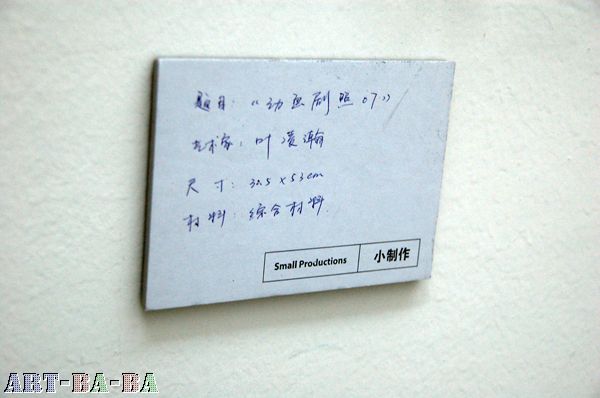 题目:“动画剧照07”
艺术家:叶凌瀚
尺寸:30.5×53cm
材料:综合材料
Small Productions 小制作
ART-BA-BA